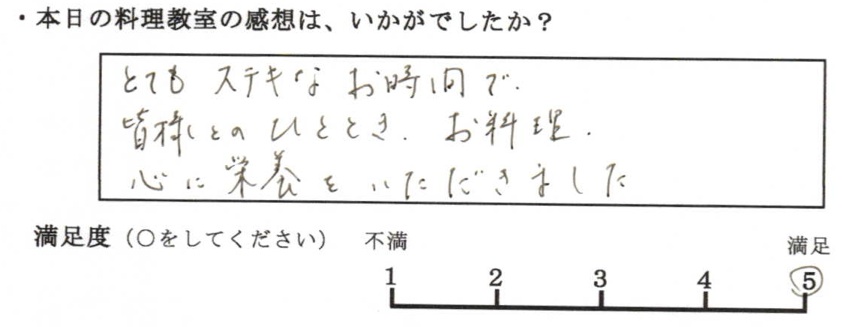 ・本日の料理教室の感想は、いかがでしたか？
とても ステキな お時間で.
皆様とのひととき. お料理.
心に栄養をいただきました
満足度（○をしてください） 不満 満足
1 2 3 4 5